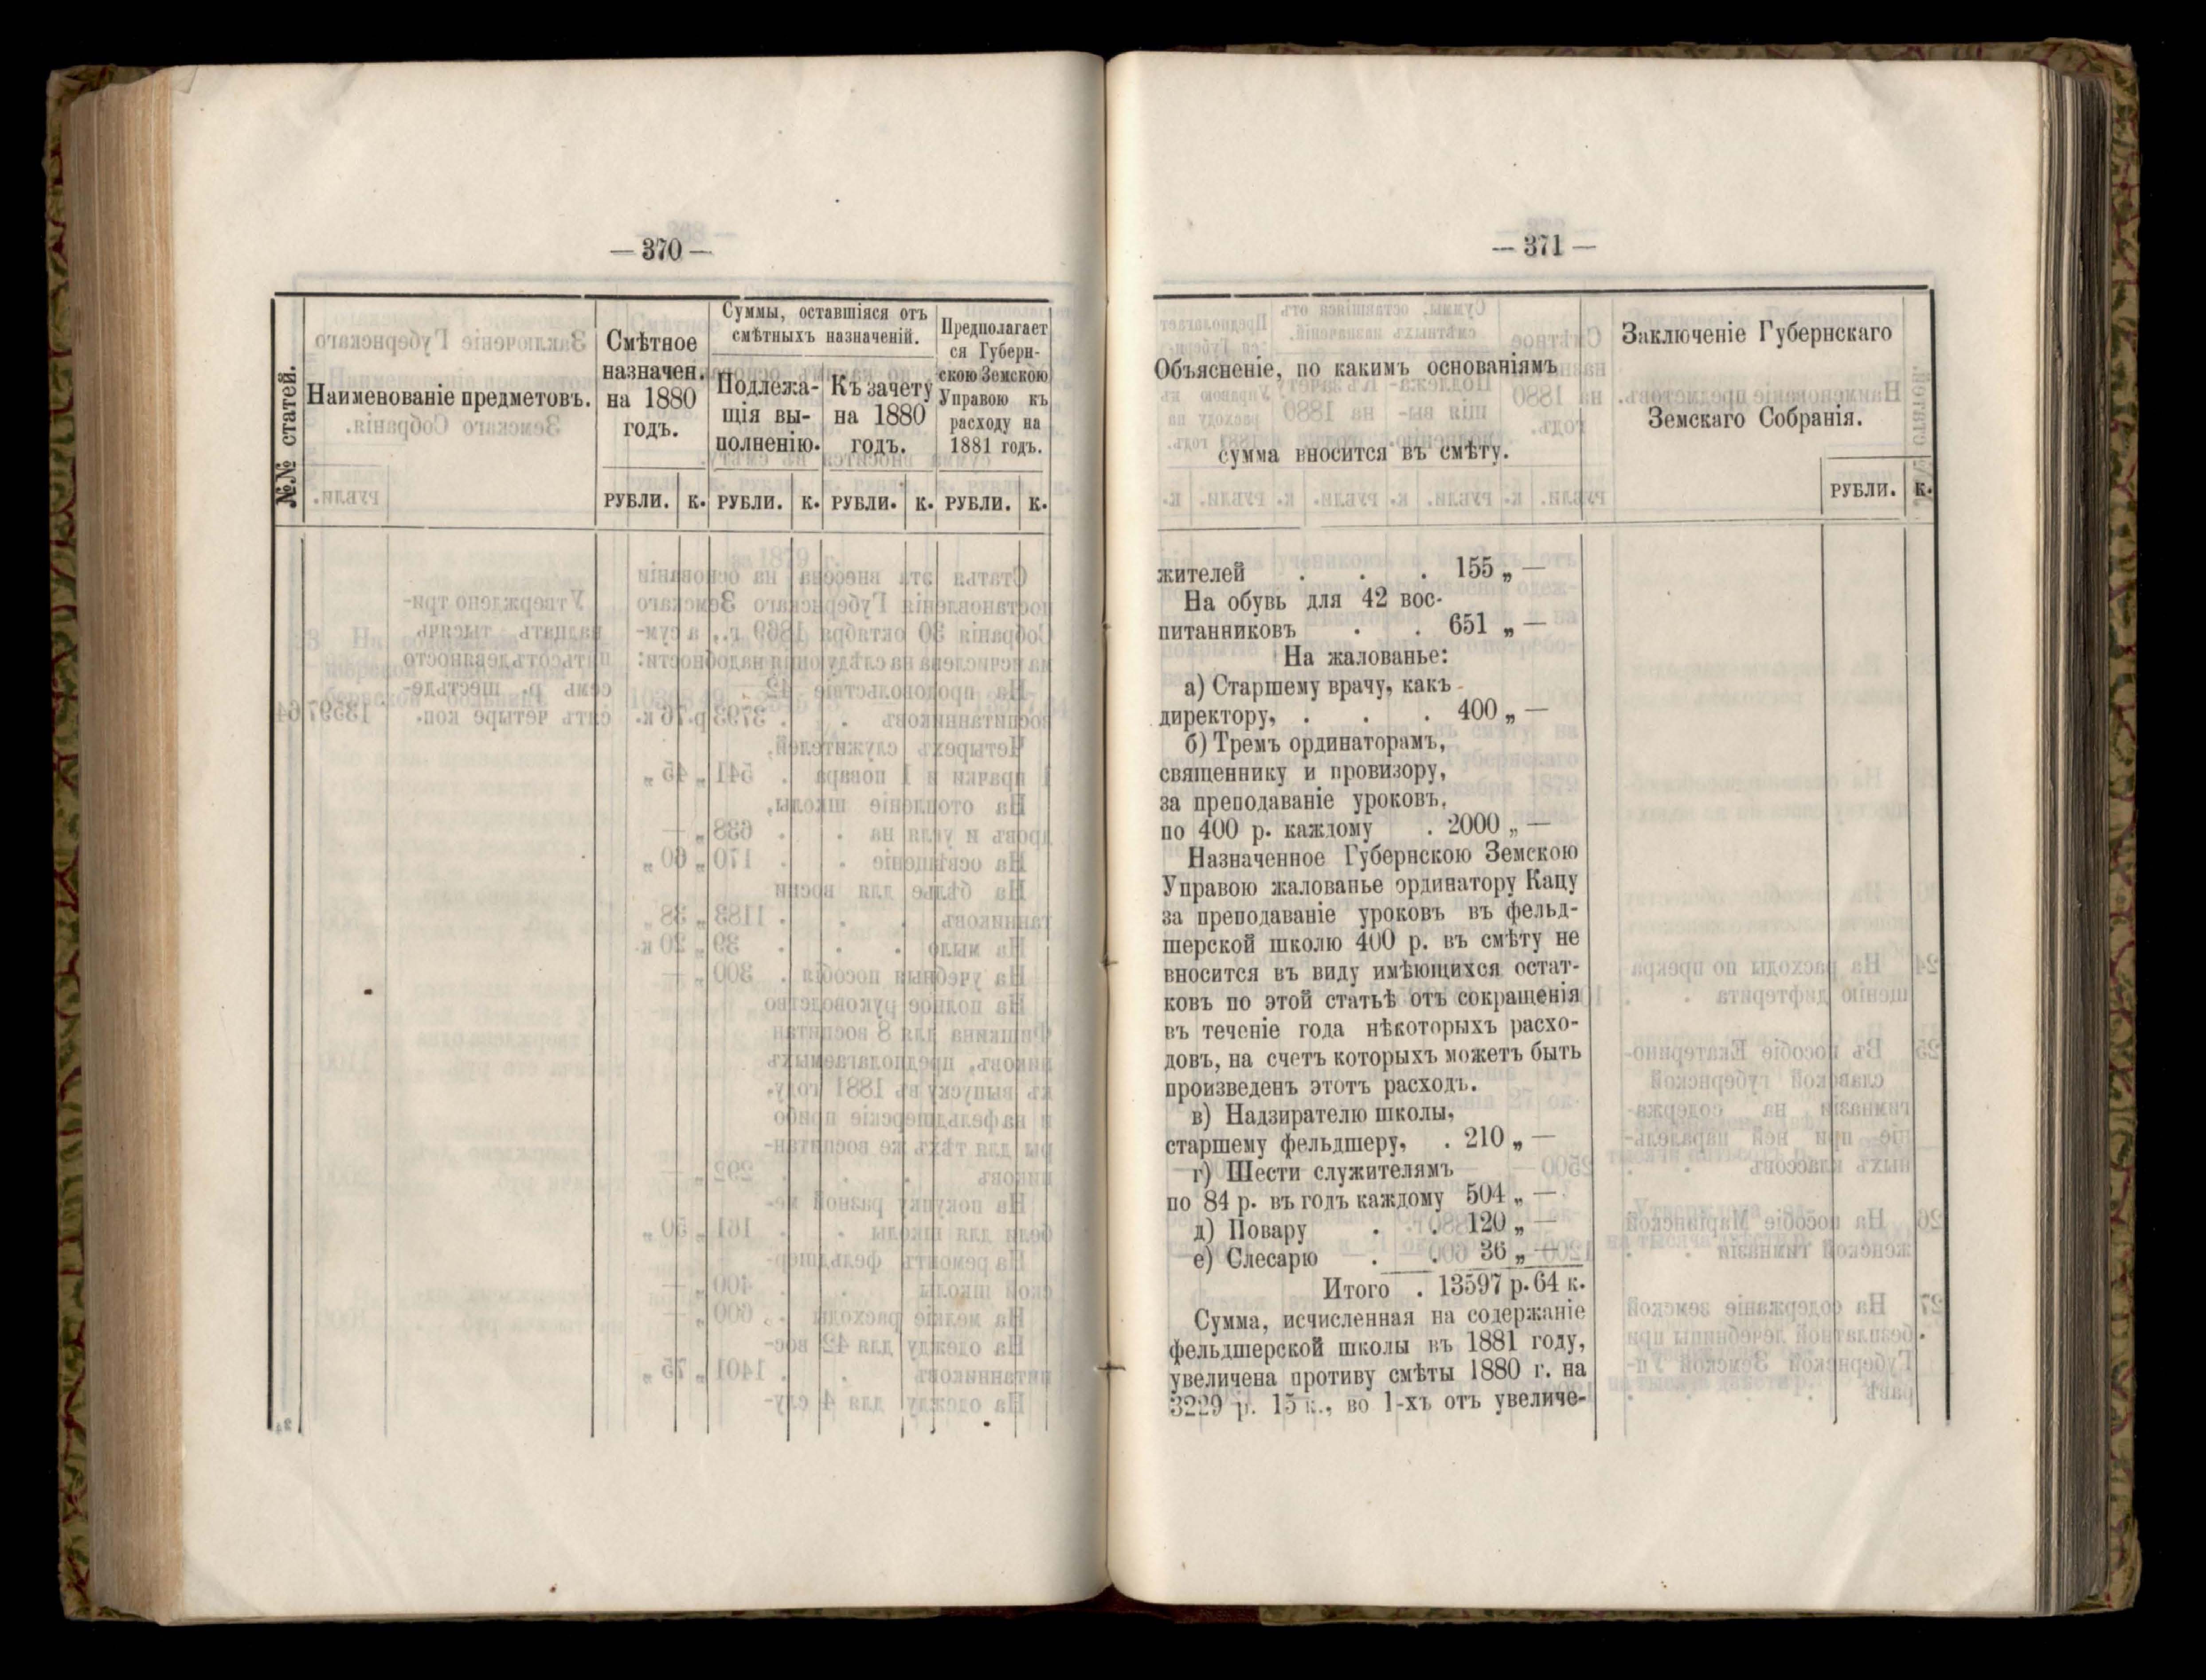 — 370 —
№№ статей.
Наименованіе предметовъ.
Смѣтное
назначен.
на 1880
годъ.
Суммы, оставшіяся отъ
смѣтныхъ назначеній.
Подлежа-
щія вы-
полненію.
Къ зачету
на 1880
годъ.
Предполагает
ся Губерн-
скою Земскою
Управою къ
расходу на
1881 годъ.
РУБЛИ. К. РУБЛИ. К. РУБЛИ. К. РУБЛИ. К.
— 371 —
Объясненіе, по какимъ основаніямъ
сумма вносится въ смѣту.
Заключеніе Губернскаго
Земскаго Собранія.
РУБЛИ. К.
жителей . . . 155 „ —
На обувь для 42 вос-
питанниковъ . . 651 „ —
На жалованье:
а) Старшему врачу, какъ
директору, . . . 400 „ —
б) Тремъ ординаторамъ,
священнику и провизору,
за преподаваніе уроковъ,
по 400 р. каждому . 2000 „ —
Назначенное Губернскою Земскою
Управою жалованье ординатору Кацу
за преподаваніе уроковъ въ фельд-
шерской школю 400 р. въ смѣту не
вносится въ виду имѣющихся остат-
ковъ по этой статьѣ отъ сокращенія
въ теченіе года нѣкоторыхъ расхо-
довъ, на счетъ которыхъ можетъ быть
произведенъ этотъ расходъ.
в) Надзирателю школы,
старшему фельдшеру, . 210 „ —
г) Шести служителямъ
по 84 р. въ годъ каждому 504 „ —
д) Повару . . 120 „ —
е) Слесарю . . 36 „ —
Итого . 13597 р. 64 к.
Сумма, исчисленная на содержаніе
фельдшерской школы въ 1881 году,
увеличена противу смѣты 1880 г. на
3229 р. 15 к., во 1-хъ отъ увеличе-